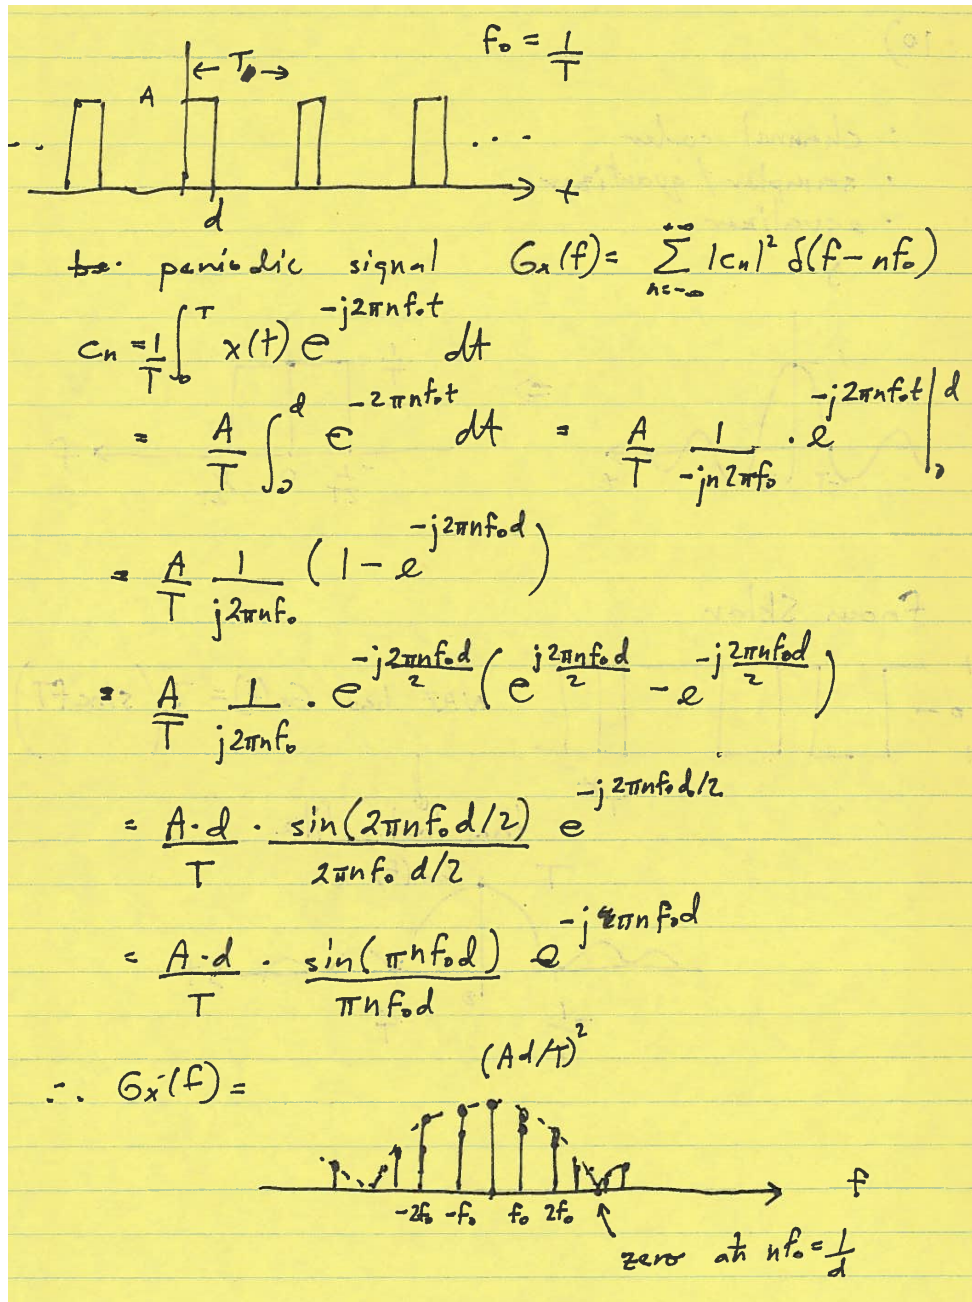 f₀ = 1/T
← T →
A
... ...
d t
periodic signal Gx(f) = ∑_{n=-∞}^{+∞} |cn|² δ(f - nf₀)
cn = 1/T ∫₀^T x(t) e^{-j2πnf₀t} dt
= A/T ∫₀^d e^{-2πnf₀t} dt = A/T 1/(-jn2πf₀) · e^{-j2πnf₀t} |₀^d
= A/T 1/(j2πnf₀) (1 - e^{-j2πnf₀d})
= A/T 1/(j2πnf₀) · e^{-j2πnf₀d/2} (e^{j2πnf₀d/2} - e^{-j2πnf₀d/2})
= A·d/T · sin(2πnf₀d/2)/(2πnf₀d/2) e^{-j2πnf₀d/2}
= A·d/T · sin(πnf₀d)/(πnf₀d) e^{-jπnf₀d}
(Ad/T)²
∴ Gx(f) =
f
-2f₀ -f₀ f₀ 2f₀
zero at nf₀ = 1/d